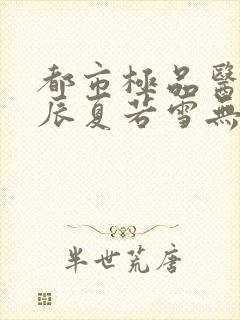 都市極品醫
辰夏若雪無
半世荒唐